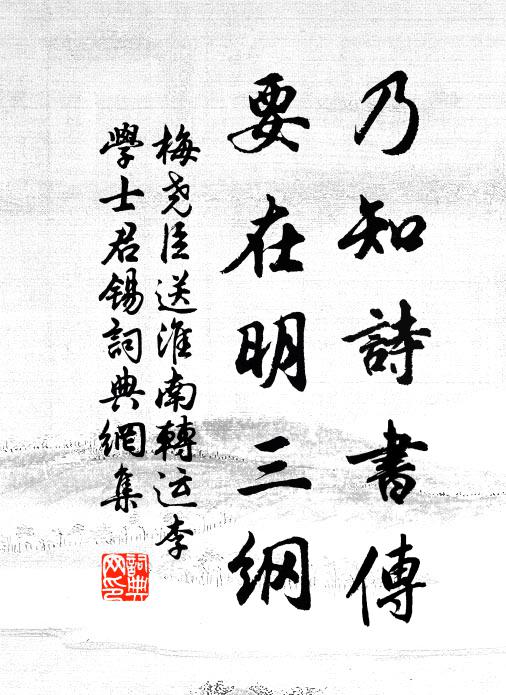 乃知詩書傳
要在明三纲
梅尧臣送淮南轉运李
學士君锡詞典網集
詞典网印